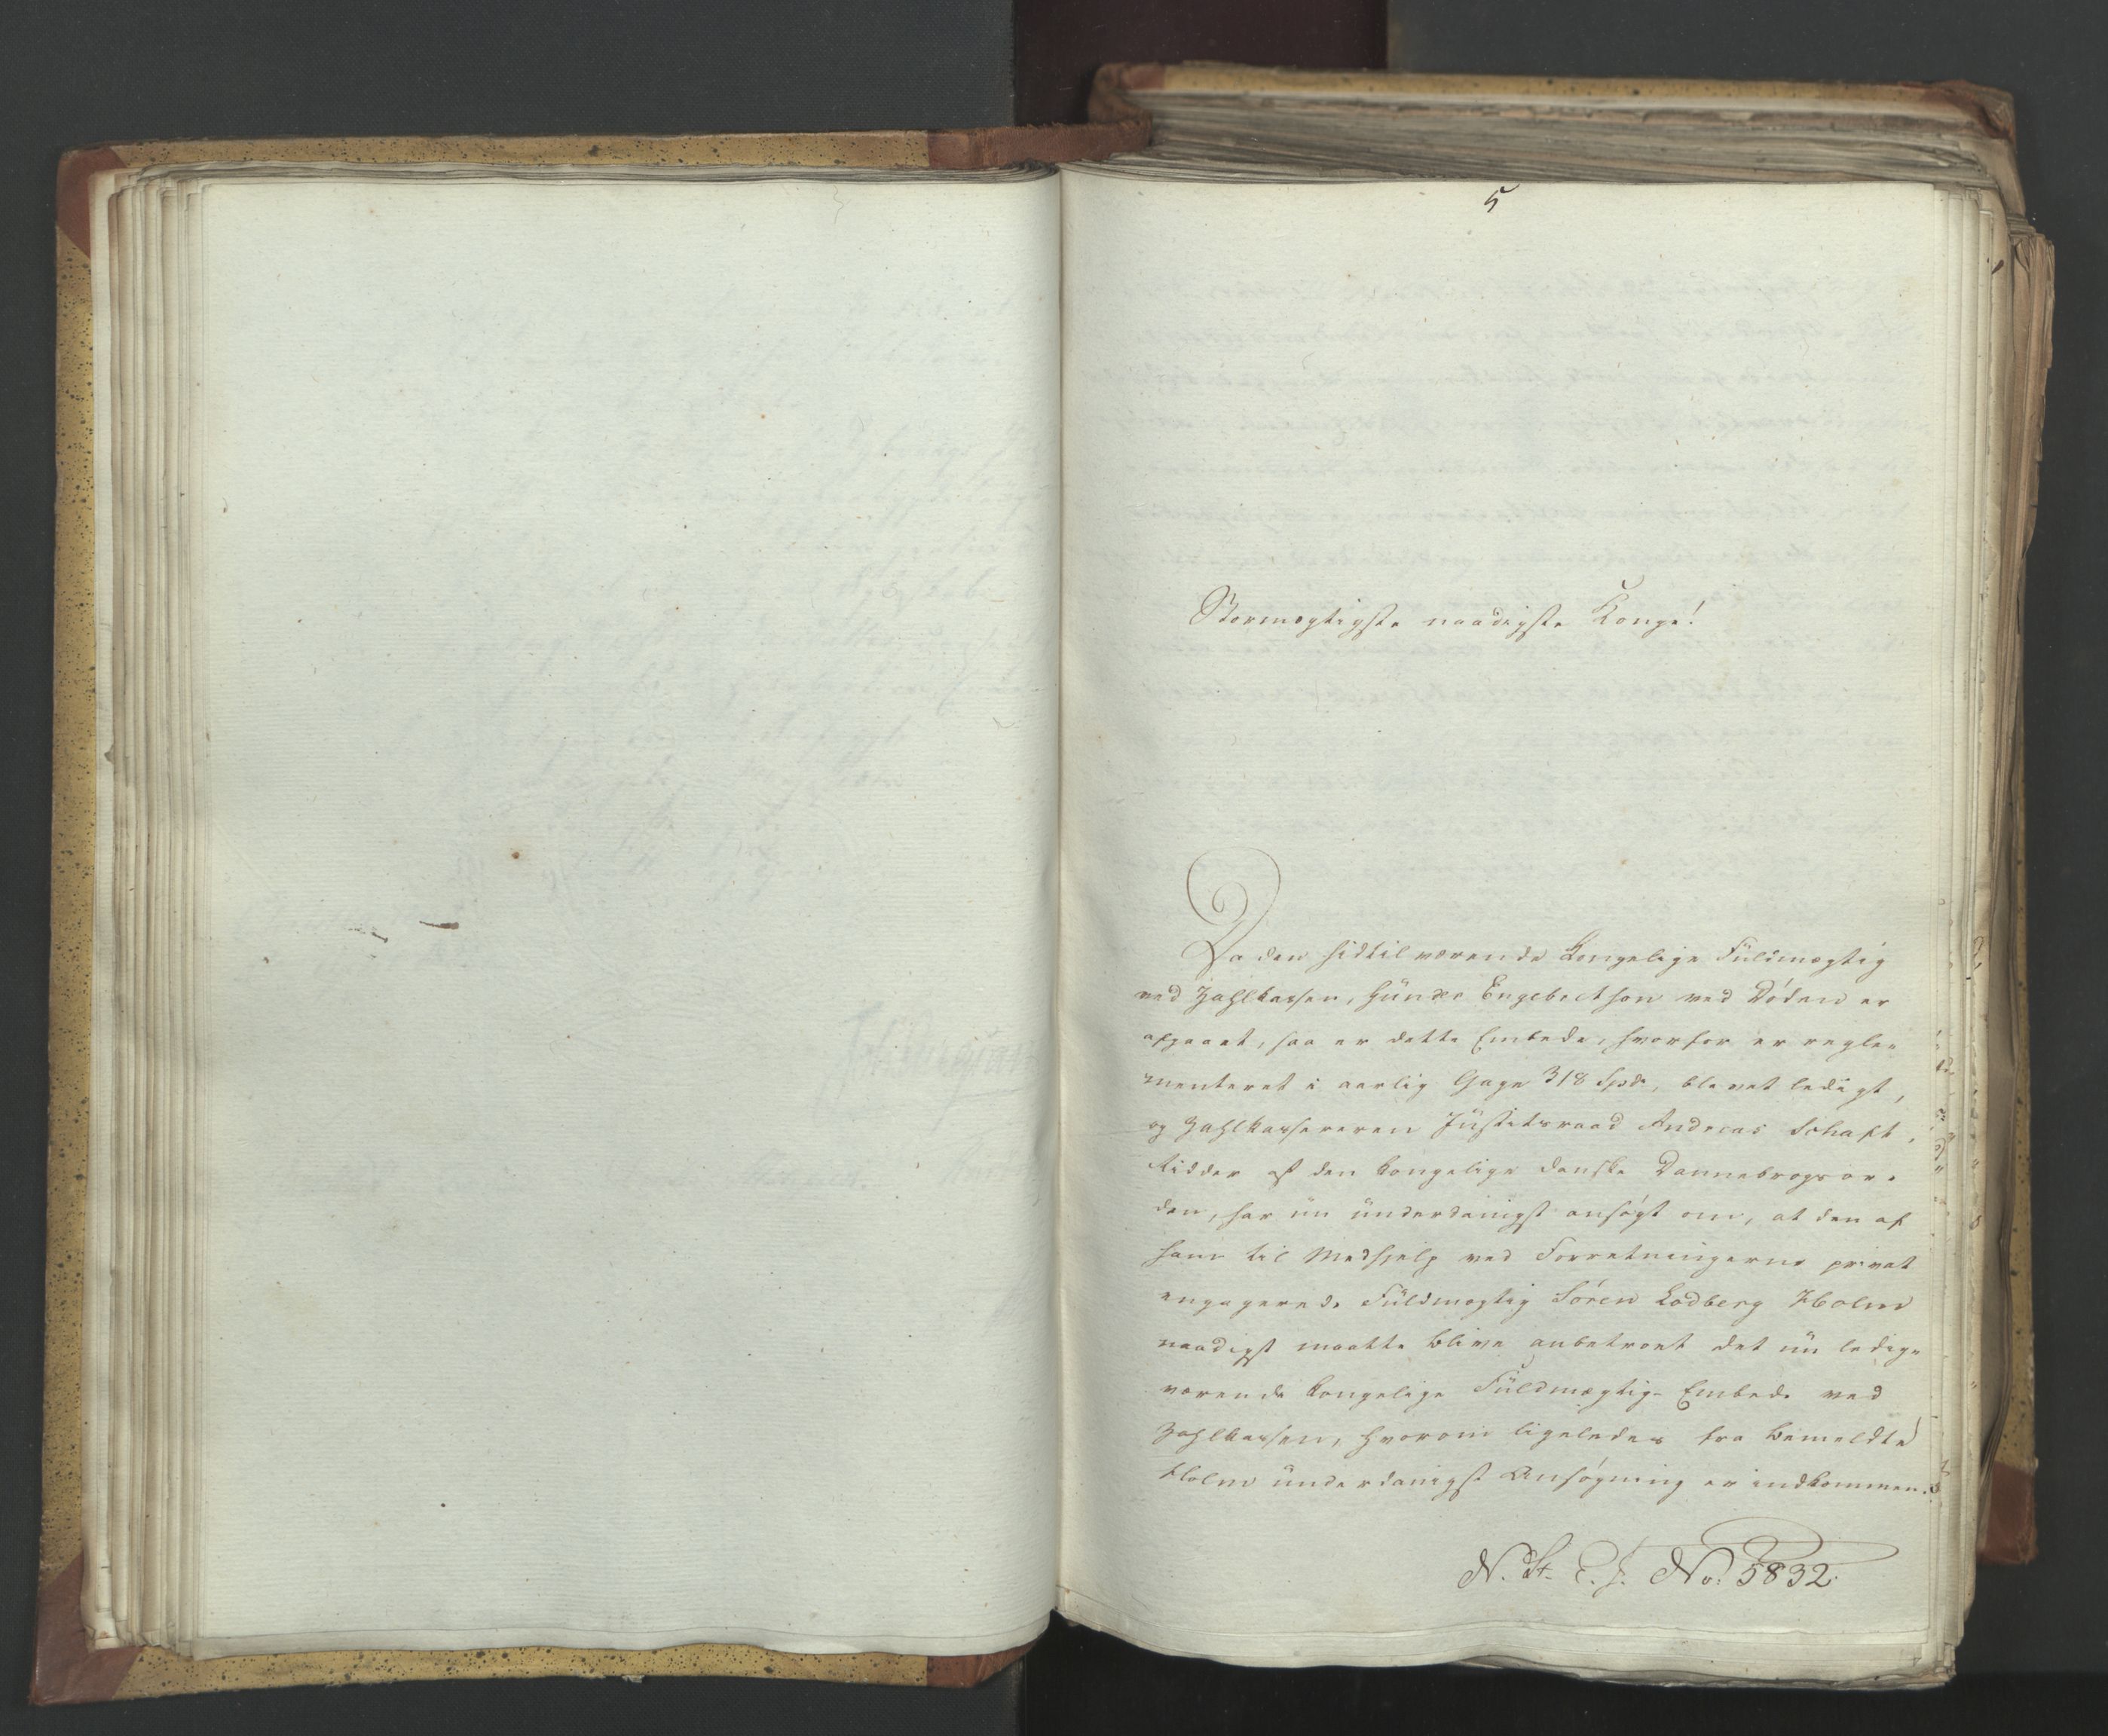 5
Stormægtigste naadigste Konge!
Da den hidtil værende Kongelige Füldmægtig
ved Zahlkassen, Günder Engebrethsen ved Døden er
afgaaet, saa er dette Embede, hvorfor er regle-
menteret i aarlig Gage 318 Spd, blevet ledigt,
og Zahlkassereren Jüstitsraad Andreas Schaft,
Ridder af den kongelige danske Dannebrogsor-
den, har nü ünderdanigst ansøgt om, at den af
ham til Medhjelp ved Forretningerne privat
engagerede Füldmægtig Søren Lodberg Holm
naadigst maatte blive anbetroet det nü ledige
værende kongelige Füldmægtig-Embede ved
Zahlkassen, hvorom ligeledes fra bemeldte
Holm ünderdanigst Ansøgning er indkommen.
N. St. E. J. No. 5832.